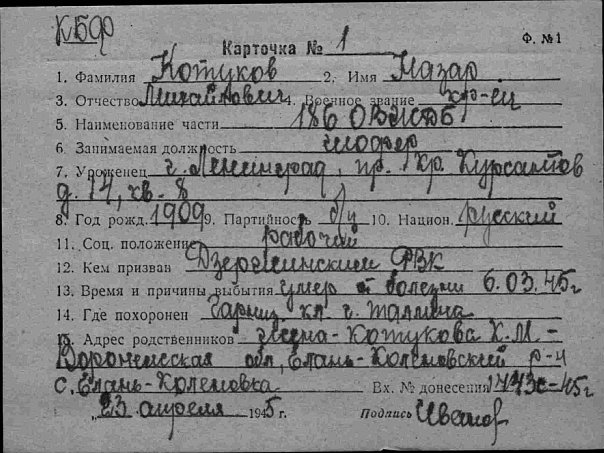 КБФ
Ф. №1
Карточка № 1
1. Фамилия Котуков 2. Имя Назар
3. Отчество Михайлович 4. Военное звание кр-ец
5. Наименование части 186
6. Занимаемая должность шофер
7. Уроженец г. Ленинград, пр. Кр. Курсантов
д. 14, кв. 8
8. Год рожд. 1909 9. Партийность б/п 10. Национ. русский
11. Соц. положение рабочий
12. Кем призван Дзержинским РВК
13. Время и причины выбытия умер от болезни 6.03.45г
14. Где похоронен Гарниз. кл. г. Таллина
15. Адрес родственников жена - Котукова Х.М -
Воронежская обл, Елань-Коленовский р-н
с. Елань-Коленовка Вх. № донесения 1773с-45г
„23 апреля 1945 г. Подпись Иванов